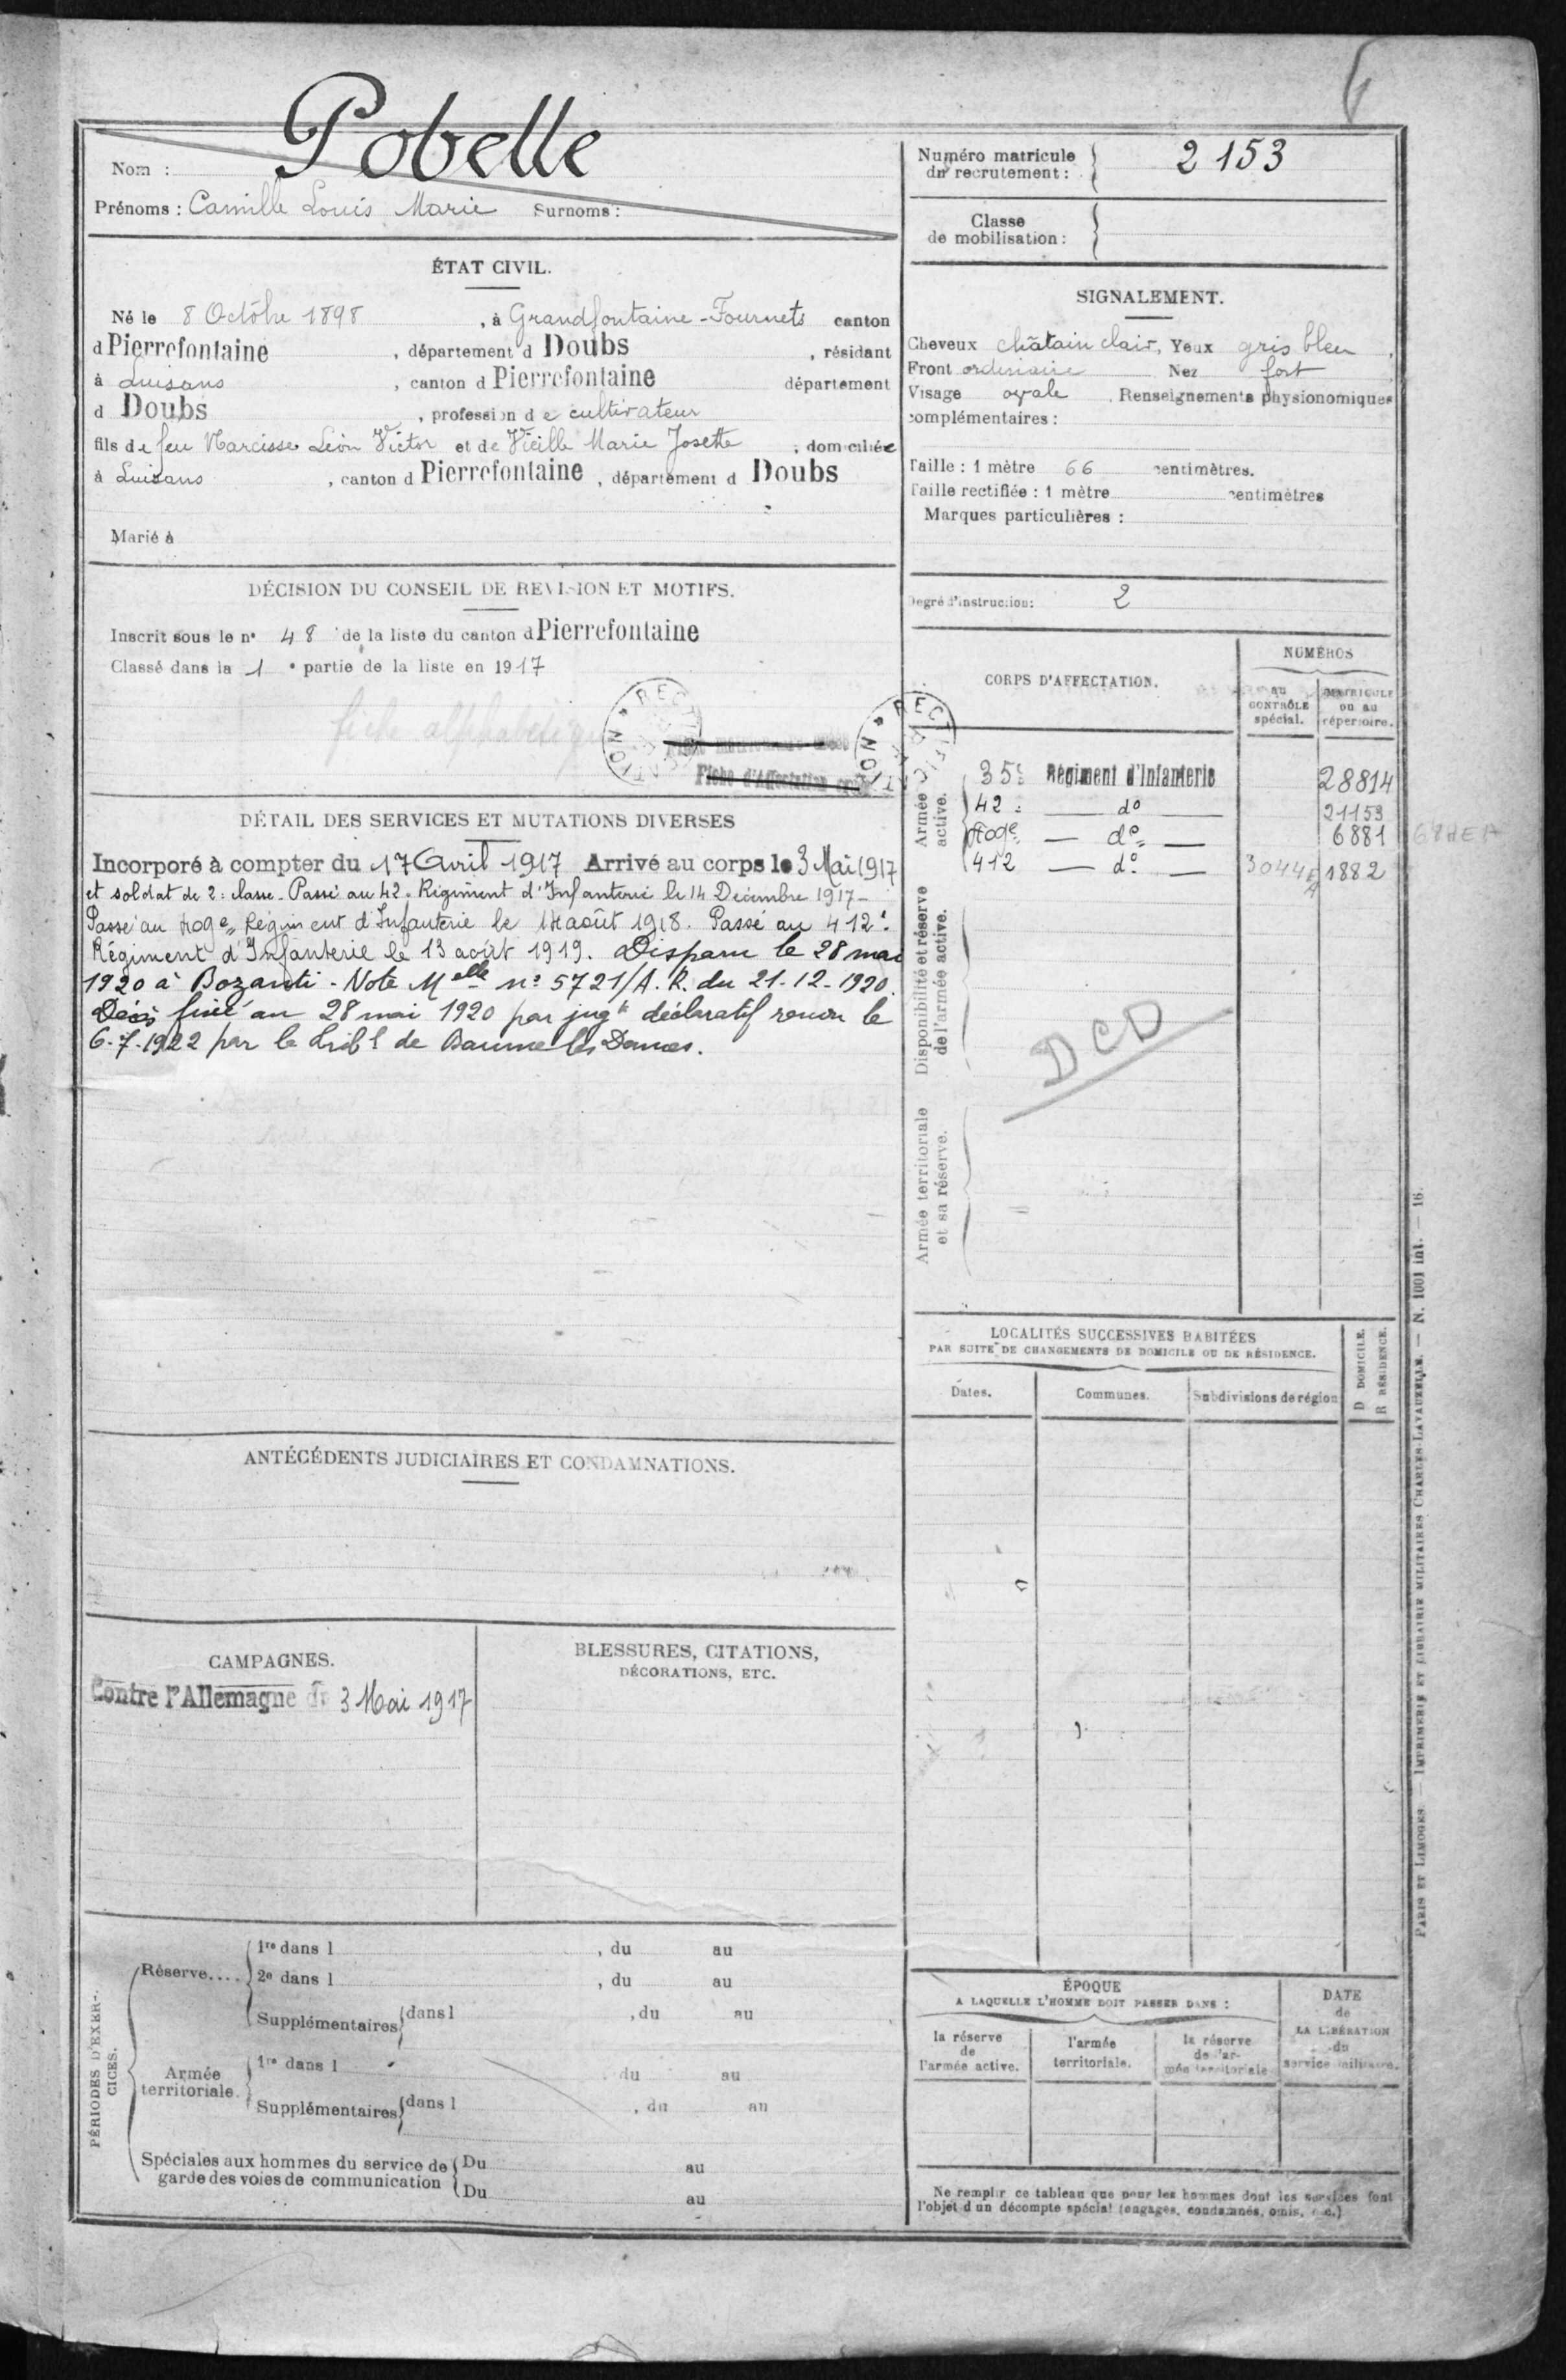 Pobelle
Nom :
Prénoms : Camille Louis Marie Surnoms :
ÉTAT CIVIL.
Né le 8 Octobre 1898, à Grandfontaine-Fournets canton
d Pierrefontaine, département d Doubs, résidant
à Luisans, canton d Pierrefontaine département
d Doubs, profession de cultivateur
fils de feu Narcisse Léon Victor et de Vieille Marie Josette, domiciliée
à Luisans, canton d Pierrefontaine, département d Doubs
Marié à
DÉCISION DU CONSEIL DE REVISION ET MOTIFS.
Inscrit sous le n° 48 de la liste du canton d Pierrefontaine
Classé dans la 1e partie de la liste en 1917
fiche alphabétique
RECTIFICATION
Fiche d'Affectation
DÉTAIL DES SERVICES ET MUTATIONS DIVERSES
Incorporé à compter du 17 Avril 1917 Arrivé au corps le 3 Mai 1917
et soldat de 2e classe. Passé au 42e Régiment d'Infanterie le 14 Décembre 1917 -
Passé au Régiment d'Infanterie le août 1918. Passé au 412e
Régiment d'Infanterie le 13 août 1919. Disparu le 28 mai
1920 à Bozanti - Note Melle n° 5721/A.R. du 21-12-1920.
Décès fixé au 28 mai 1920 par jugt déclaratif rendu le
6-7-1922 par le tribl de Baume les Dames.
ANTÉCÉDENTS JUDICIAIRES ET CONDAMNATIONS.
CAMPAGNES.
Contre l'Allemagne du 3 Mai 1917
BLESSURES, CITATIONS,
DÉCORATIONS, ETC.
PÉRIODES D'EXER-
CICES.
Réserve....
1re dans l , du au
2e dans l , du au
Supplémentaires dans l , du au
Armée
territoriale.
1re dans l , du au
Supplémentaires dans l , du au
Spéciales aux hommes du service de
garde des voies de communication
Du au
Du au
Numéro matricule
du recrutement : 2153
Classe
de mobilisation :
SIGNALEMENT.
Cheveux châtain clair, Yeux gris bleu,
Front ordinaire Nez fort
Visage ovale. Renseignements physionomiques
complémentaires :
Taille : 1 mètre 66 centimètres.
Taille rectifiée : 1 mètre centimètres
Marques particulières :
Degré d'instruction : 2
CORPS D'AFFECTATION.
NUMÉROS
au
CONTRÔLE
spécial.
MATRICULE
ou au
répertoire.
Armée
active.
35e Régiment d'Infanterie 28814
42e d° 21153
d° 6881
412 d° 1882
Disponibilité et réserve
de l'armée active.
DCD
Armée territoriale
et sa réserve.
LOCALITÉS SUCCESSIVES HABITÉES
PAR SUITE DE CHANGEMENTS DE DOMICILE OU DE RÉSIDENCE.
Dates.
Communes.
Subdivisions de région
D DOMICILE.
R RÉSIDENCE.
ÉPOQUE
A LAQUELLE L'HOMME DOIT PASSER DANS :
la réserve
de
l'armée active.
l'armée
territoriale.
la réserve
de l'ar-
mée territoriale
DATE
de
LA LIBÉRATION
du
service militaire.
Ne remplir ce tableau que pour les hommes dont les services font
l'objet d'un décompte spécial (engagés, condamnés, omis, etc.)
PARIS ET LIMOGES. — IMPRIMERIE ET LIBRAIRIE MILITAIRES CHARLES-LAVAUZELLE. — N. 1001 int. — 16.